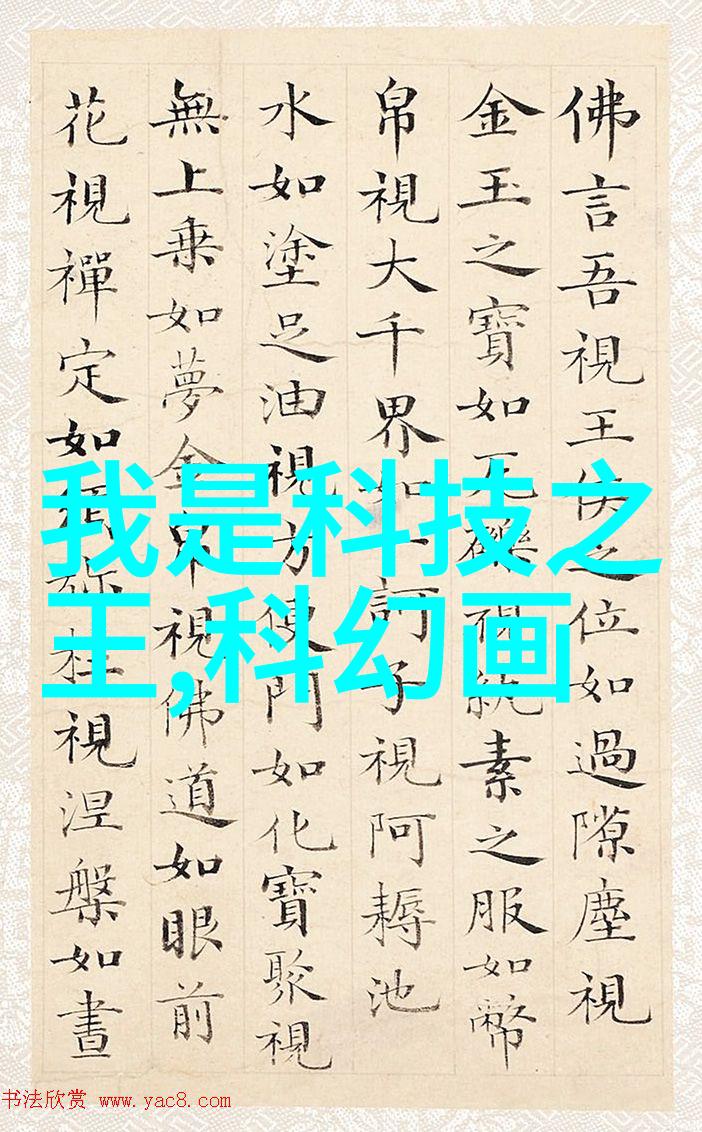 佛言吾視王侯之位如過隙塵視
金玉之寶如瓦礫視紈素之服如幣
帛視大千界如一訶子視阿耨池
水如塗足油視方便門如化寶聚視
無上乗如夢金帛視佛道如眼前
花視禪定如須弥柱視涅槃如晝
我是科技之
王,科幻画
书法欣赏 www.yac8.com